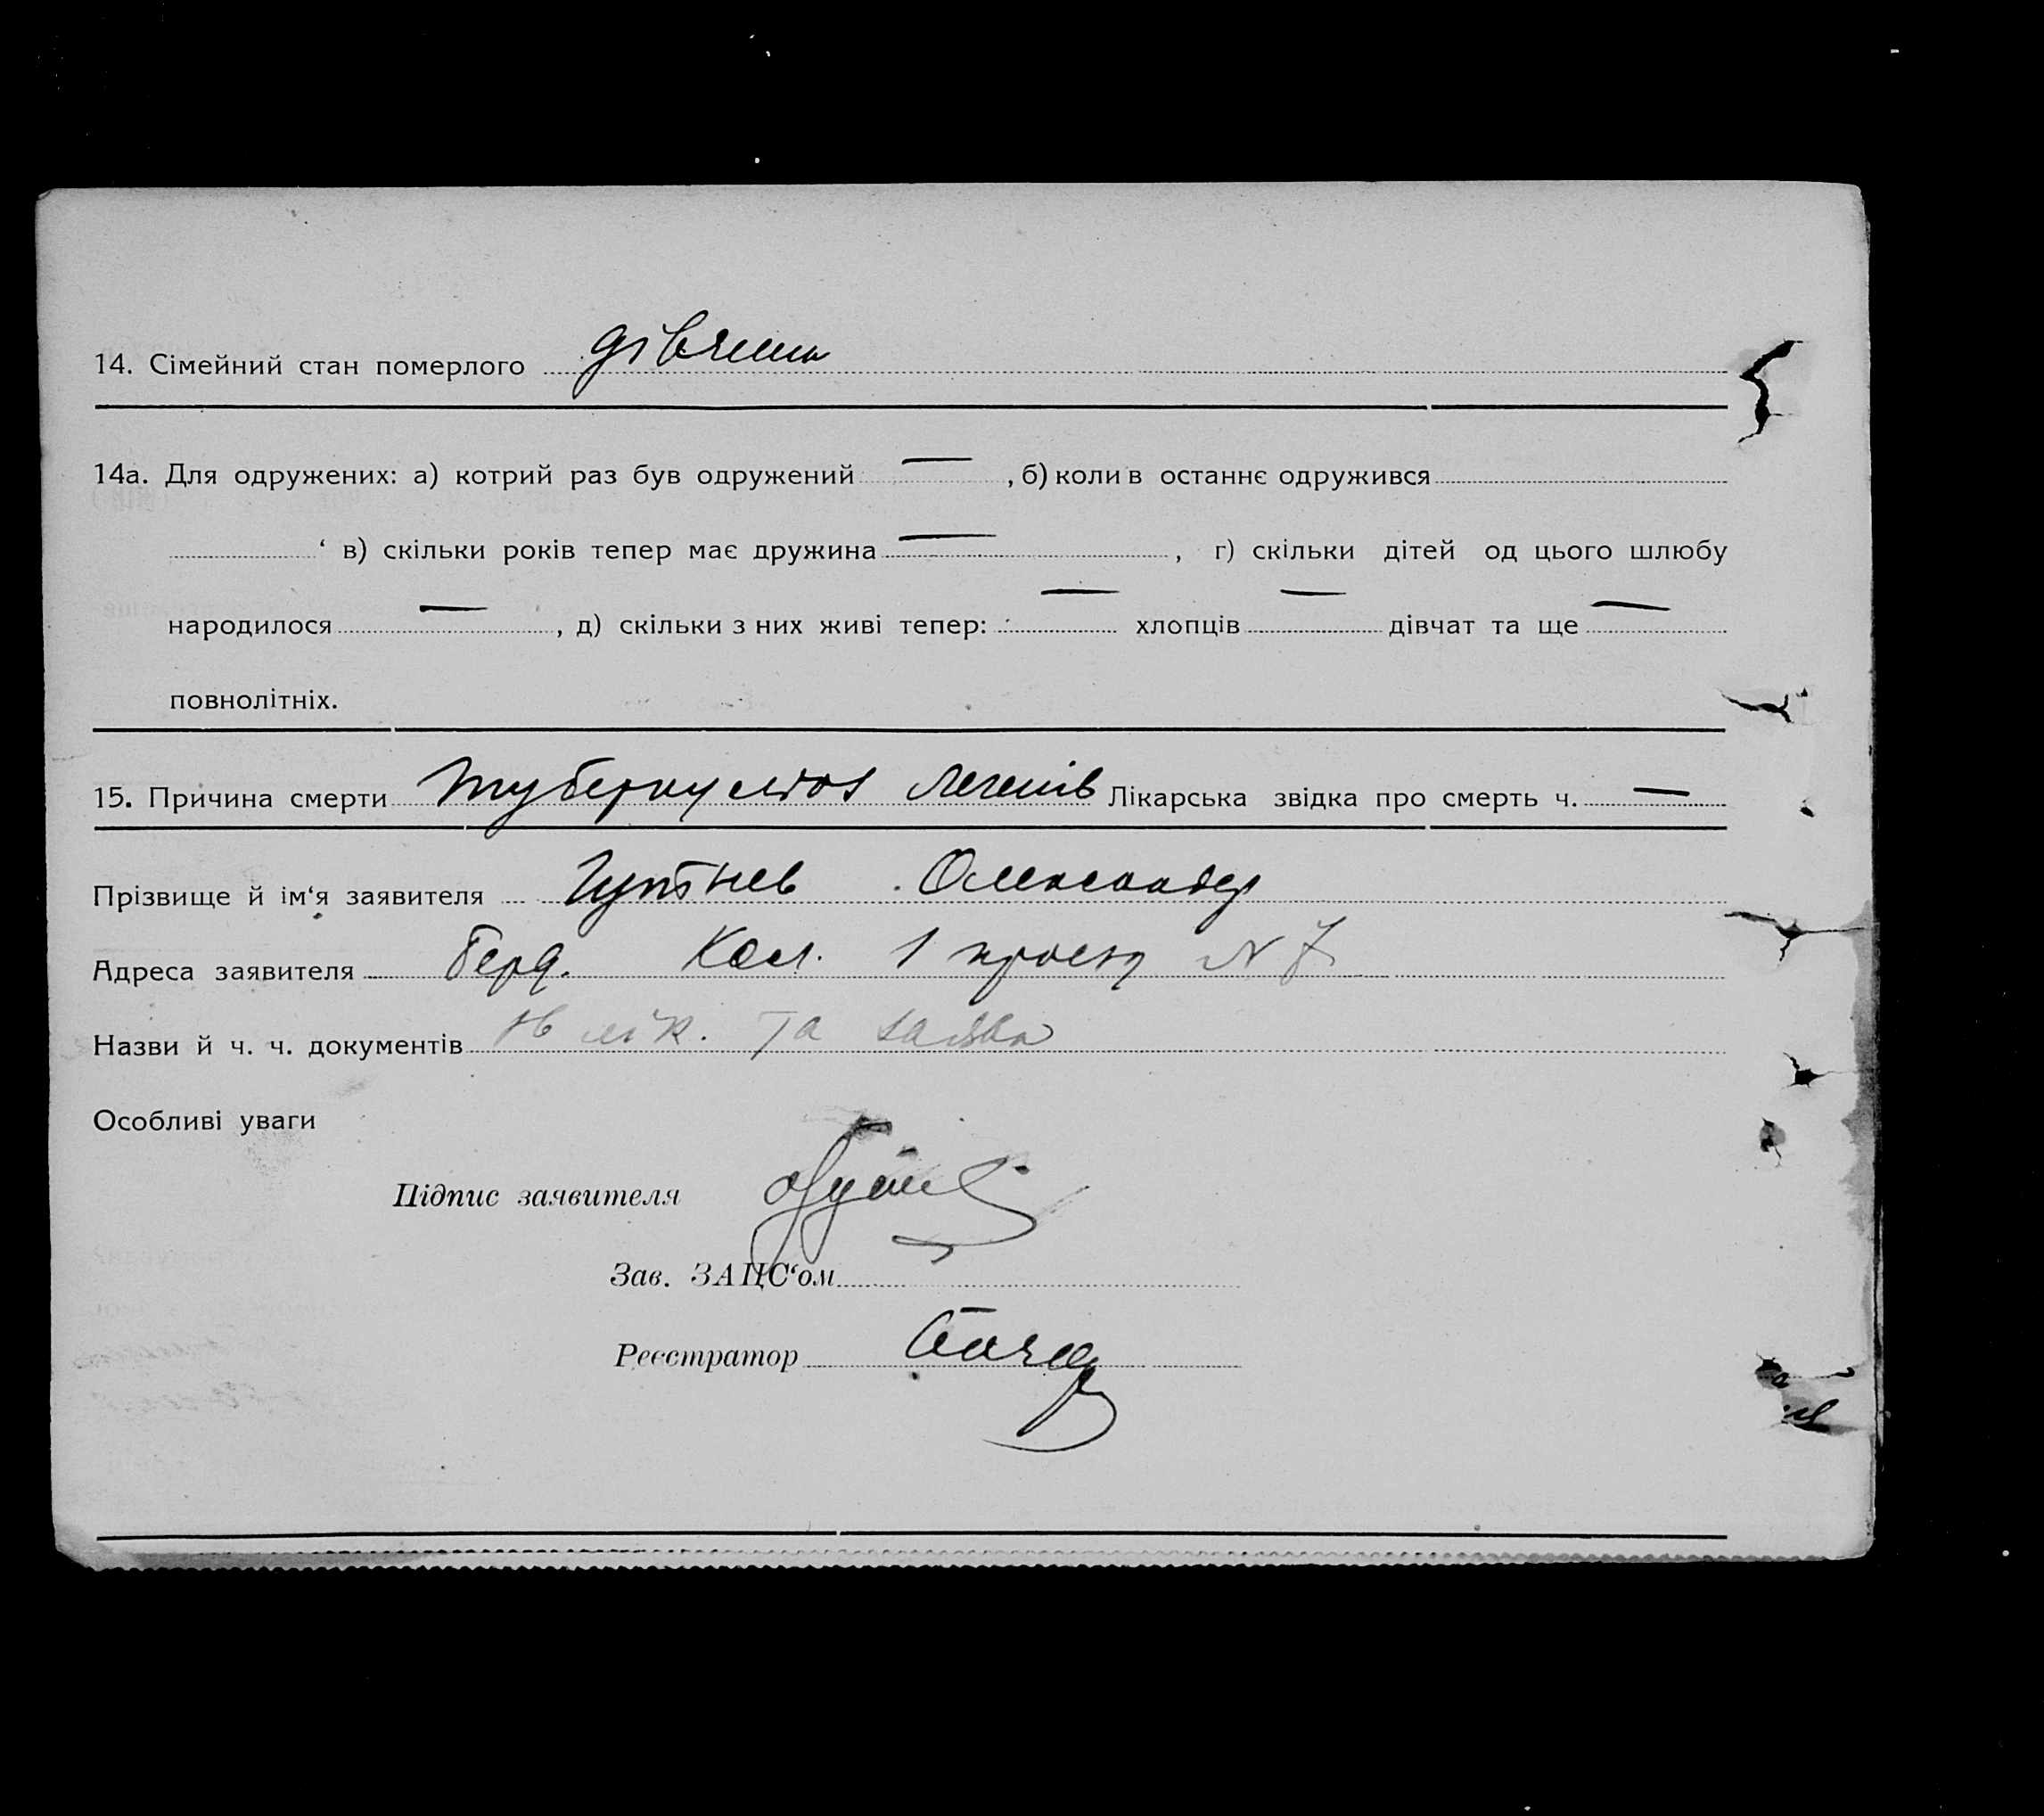 14. Сімейний стан померлого дівчина
14а. Для одружених: а) котрий раз був одружений — , б) коли в останнє одружився
‘ в) скільки років тепер має дружина — , г) скільки дітей од цього шлюбу
народилося — , д) скільки з них живі тепер: — хлопців — дівчат та ще —
повнолітніх.
15. Причина смерти туберкульоз легенів Лікарська звідка про смерть ч. —
Прізвище й ім‘я заявителя Олександр
Адреса заявителя Берд. Кол. 1 проезд N 7
Назви й ч. ч. документів лік. та заява
Особливі уваги
Підпис заявителя
Зав. ЗАЦС‘ом
Реєстратор